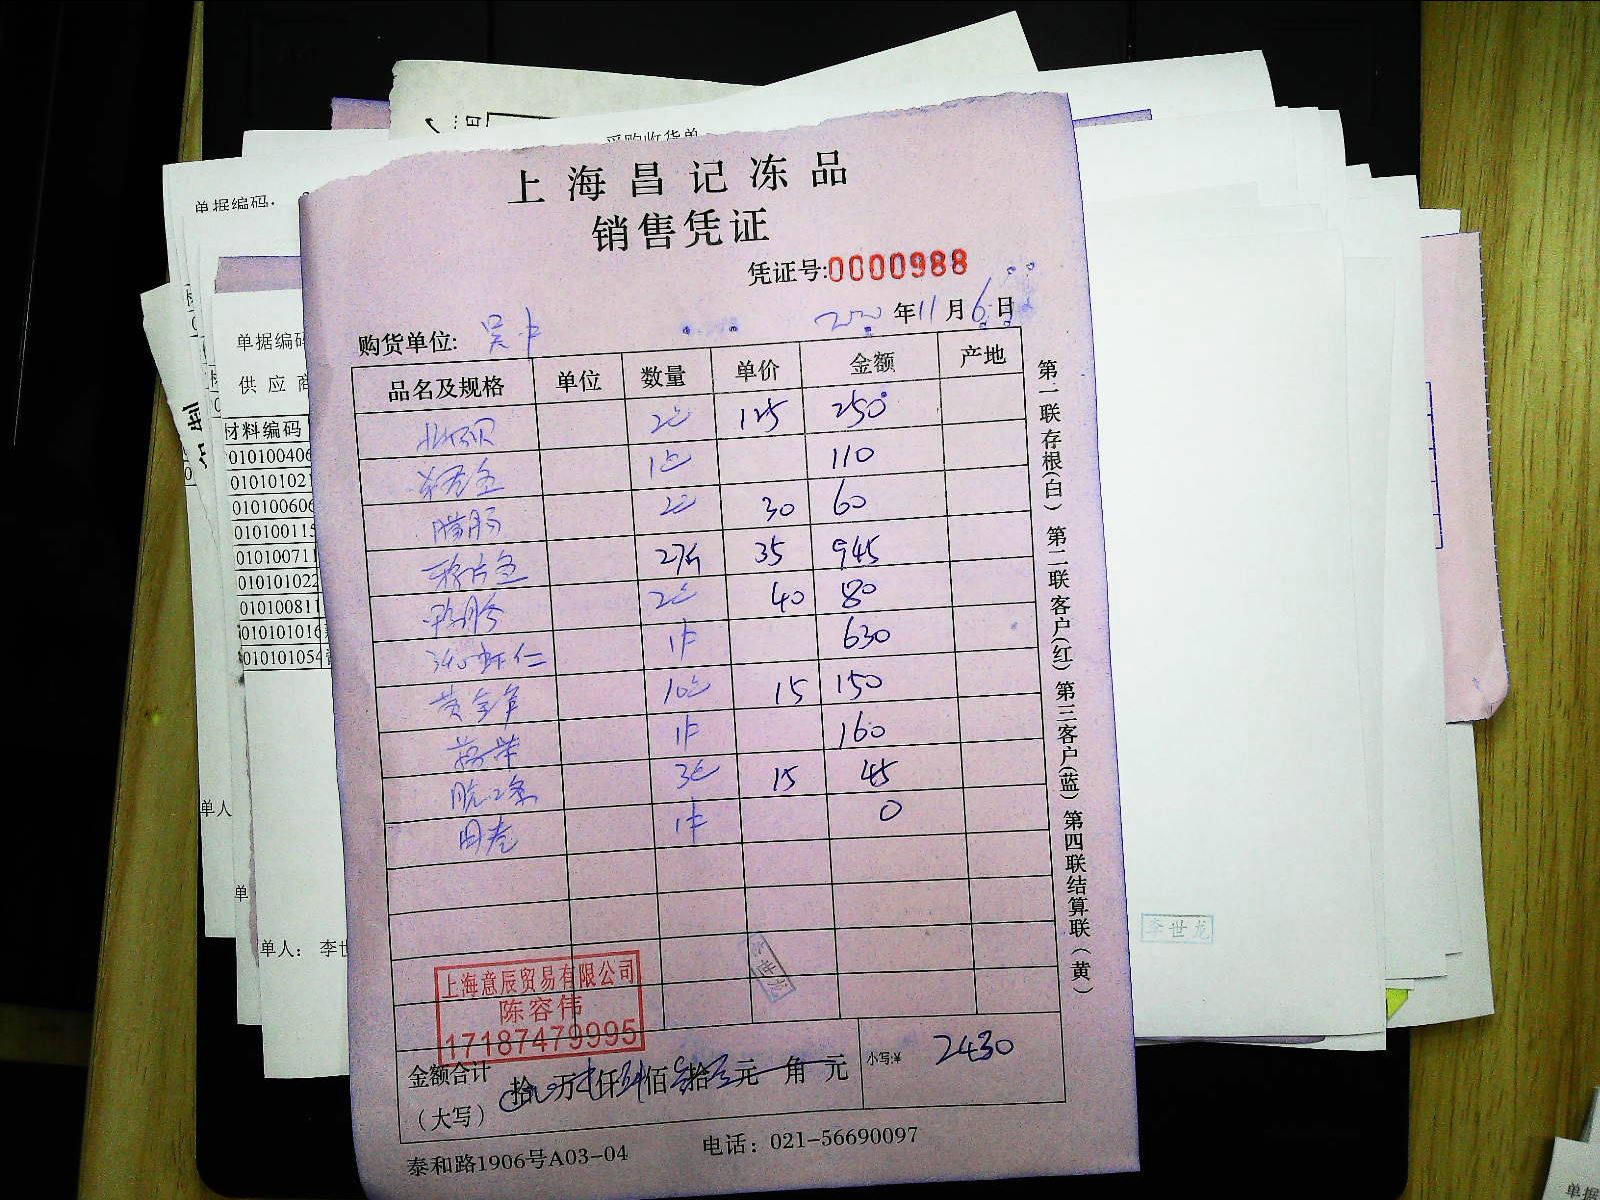 采购收货单
单据编码:
上海昌记冻品
销售凭证
凭证号:0000988
2020年11月6日
购货单位:
品名及规格 单位 数量 单价 金额 产地
北极贝 2包 125 250
1包 110
腊肠 2包 30 60
27斤 35 945
2包 40 80
340虾仁 1件 630
黄金 10包 15 150
1件 160
3包 15 45
1件 0
第一联存根(白) 第二联客户(红) 第三客户(蓝) 第四联结算联(黄)
上海意辰贸易有限公司
陈容伟
17187479995
世龙
金额合计
(大写)
拾 万 仟 佰 拾 元 角 元
小写:¥ 2430
泰和路1906号A03-04 电话: 021-56690097
单据编码
供应商
材料编码
010100406
01010102
010100606
01010011
01010071
010101022
01010081
010101016
010101054
单人
单
单人: 李世
李世龙
单据